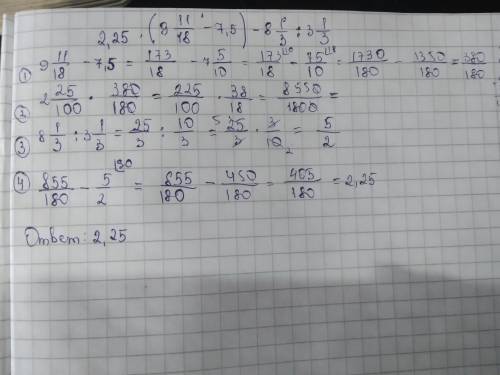 2,25 · (9 11/18 - 7,5) - 8 1/3 : 3 1/3
① 9 11/18 - 7,5 = 173/18 - 7 5/10 = 173/18 - 75/10 = 1730/180 1350/180 = 380/180
② 2 25/100 · 380/180 = 225/100 · 38/18 = 8550/1800 =
③ 8 1/3 : 3 1/3 = 25/3 : 10/3 = 25/3 · 3/10 = 5/2
④ 855/180 - 5/2 = 855/180 - 450/180 = 405/180 = 2,25
Ответ: 2,25